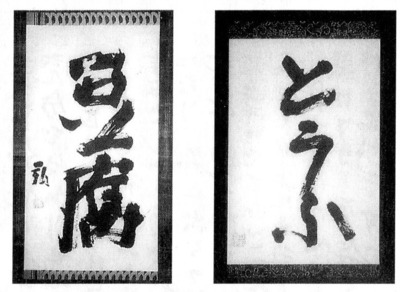 豆腐
とうふ